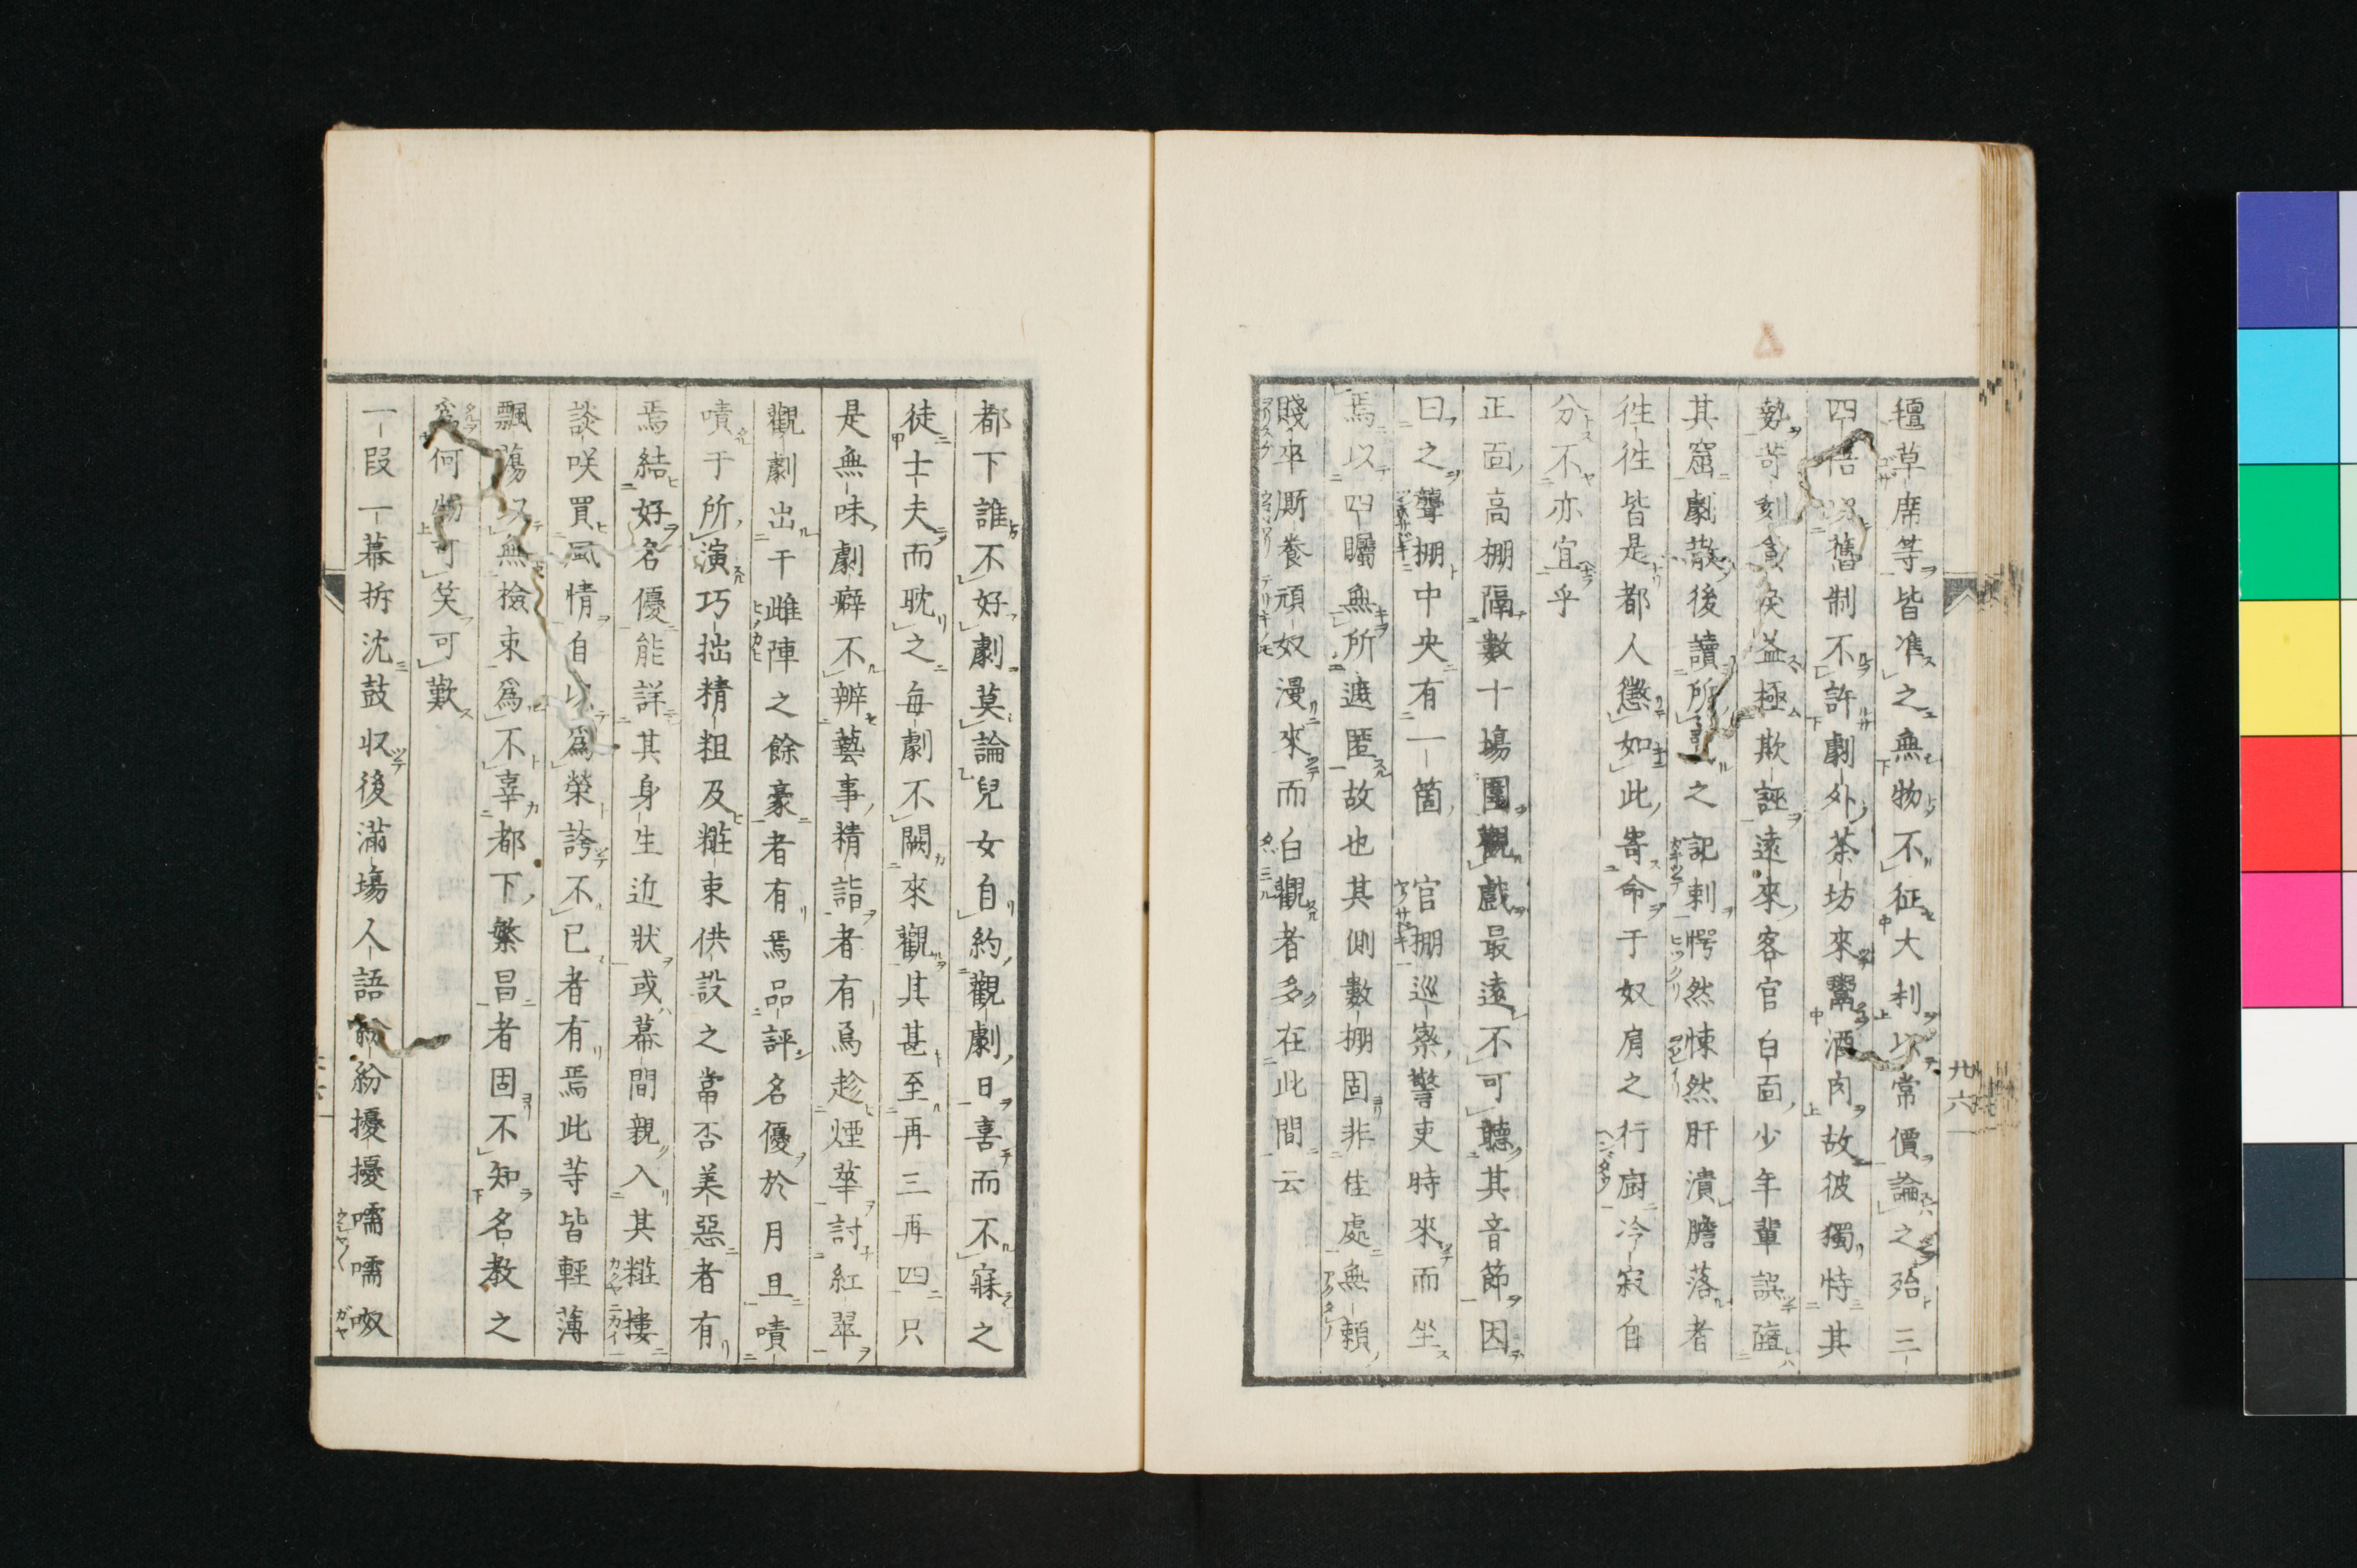 氊草席等皆准之無物不征大利以常價論之殆三
四倍以舊制不許劇外茶坊來鬻酒肉故彼獨恃其
勢苛刻貪戾益極欺誣遠來客官白面少年輩誤
其窟劇散後讀所之記剌愕然悚然肝潰膽落者
徃徃皆是都人懲如此寄命于奴肩之行厨冷寂自
分不亦宜乎
正面高棚隔數十塲圍觀戲最遠不可聽其音節因
曰之聾棚中央有一箇官棚巡察警吏時來而坐
焉以四矚無所遮匿故也其側數棚固非佳處無頼
賤卒厮養頑奴漫來而白觀者多在此間云
廿六
都下誰不好劇莫論兒女自約觀劇日喜而不寐之
徒士夫而耽之每劇不闕來觀其甚至再三再四只
是無味劇癖不辨藝事精詣者有焉趁煙華討紅翠
觀劇出于雌陣之餘豪者有焉品評名優於月旦嘖
嘖于所演巧拙精粗及糚束供設之當否美惡者有
焉結好名優能詳其身生近狀或幕間親入其糚樓
談咲買風情自以爲榮誇不已者有焉此等皆輕薄
飄蕩又無撿束爲不辜都下繁昌者固不知名教之
爲何物可笑可歎
一段一幕拆沈鼓収後滿塲人語紛紛擾擾嚅嚅呶